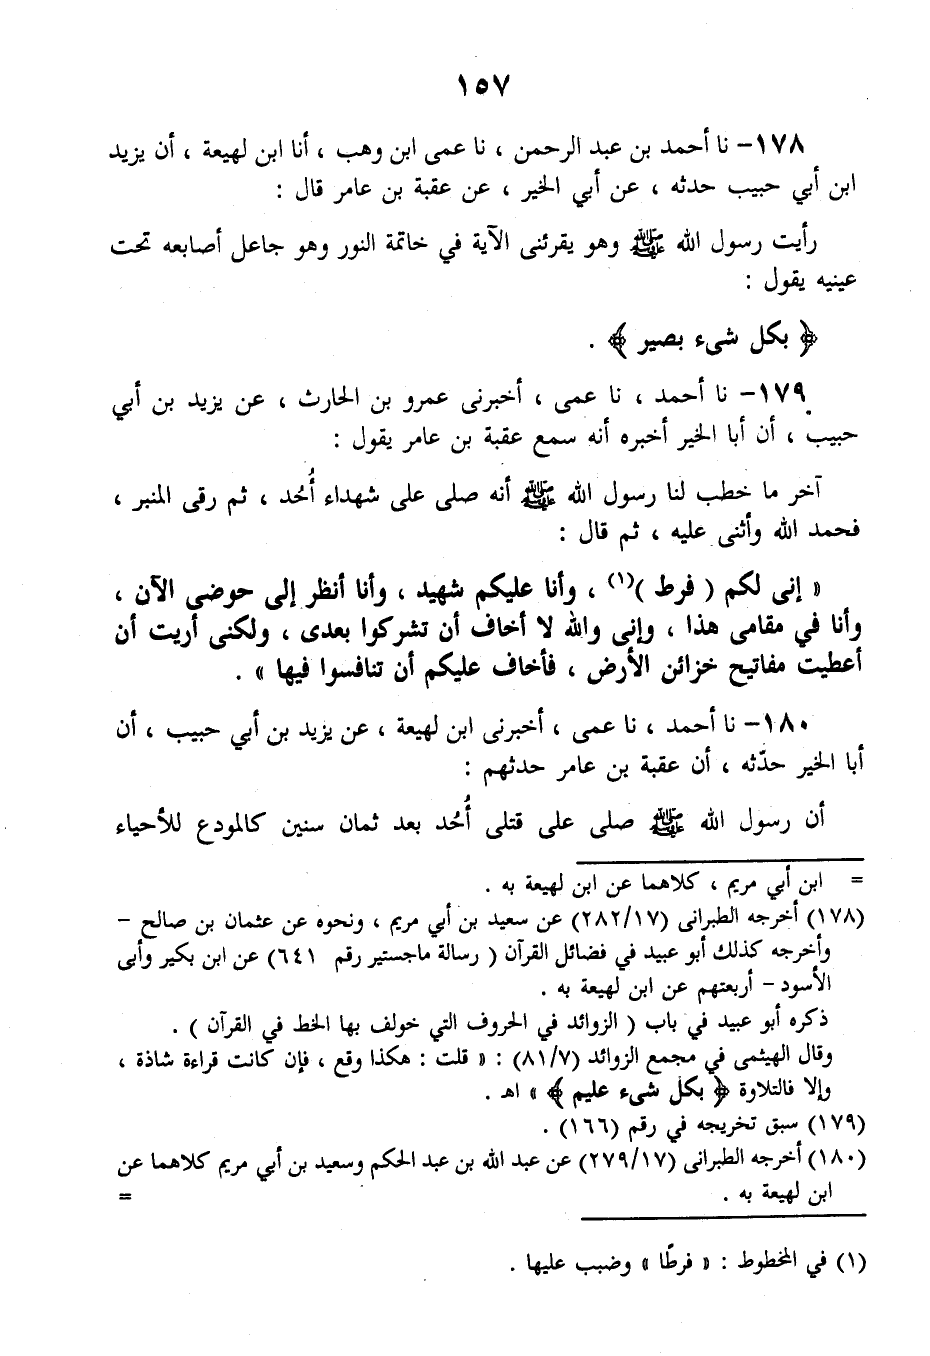 ١٥٧
١٧٨- نا أحمد بن عبد الرحمن ، نا عمى ابن وهب ، أنا ابن لهيعة ، أن يزيد
ابن أبي حبيب حدثه ، عن أبي الخير ، عن عقبة بن عامر قال :
رأيت رسول الله ﷺ وهو يقرئنى الآية في خاتمة النور وهو جاعل أصابعه تحت
عينيه يقول :
﴿ بكل شىء بصير ﴾ .
١٧٩- نا أحمد ، نا عمى ، أخبرنى عمرو بن الحارث ، عن يزيد بن أبي
حبيب ، أن أبا الخير أخبره أنه سمع عقبة بن عامر يقول :
آخر ما خطب لنا رسول الله ﷺ أنه صلى على شهداء أُحُد ، ثم رقى المنبر ،
فحمد الله وأثنى عليه ، ثم قال :
« إنى لكم ( فرط )(١) ، وأنا عليكم شهيد ، وأنا أنظر إلى حوضى الآن ،
وأنا في مقامى هذا ، وإنى والله لا أخاف أن تشركوا بعدى ، ولكنى أريت أن
أعطيت مفاتيح خزائن الأرض ، فأخاف عليكم أن تنافسوا فيها » .
١٨٠- نا أحمد ، نا عمى ، أخبرنى ابن لهيعة ، عن يزيد بن أبي حبيب ، أن
أبا الخير حدّثه ، أن عقبة بن عامر حدثهم :
أن رسول الله ﷺ صلى على قتلى أُحُد بعد ثمان سنين كالمودع للأحياء
= ابن أبي مريم ، كلاهما عن ابن لهيعة به .
(١٧٨) أخرجه الطبرانى (٢٨٢/١٧) عن سعيد بن أبي مريم ، ونحوه عن عثمان بن صالح -
وأخرجه كذلك أبو عبيد في فضائل القرآن ( رسالة ماجستير رقم ٦٤١) عن ابن بكير وأبى
الأسود - أربعتهم عن ابن لهيعة به .
ذكره أبو عبيد في باب ( الزوائد في الحروف التي خولف بها الخط في القرآن ) .
وقال الهيثمى في مجمع الزوائد (٨١/٧) : « قلت : هكذا وقع ، فإن كانت قراءة شاذة ،
وإلا فالتلاوة ﴿ بكل شىء عليم ﴾ » اهـ .
(١٧٩) سبق تخريجه في رقم (١٦٦) .
(١٨٠) أخرجه الطبرانى (٢٧٩/١٧) عن عبد الله بن عبد الحكم وسعيد بن أبي مريم كلاهما عن
ابن لهيعة به . =
(١) في المخطوط : « فرطًا » وضبب عليها .